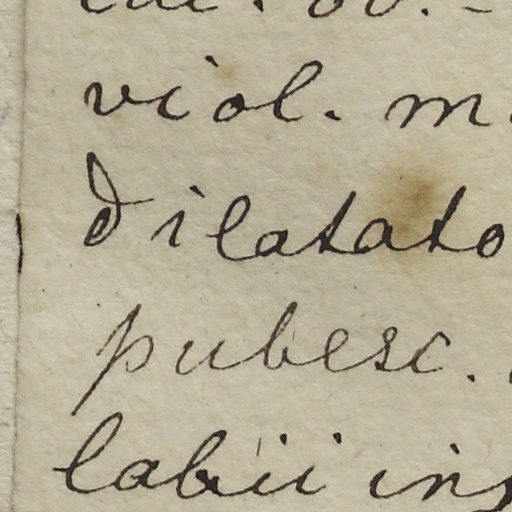 viol. m.
dilatato
pubesc.
labii